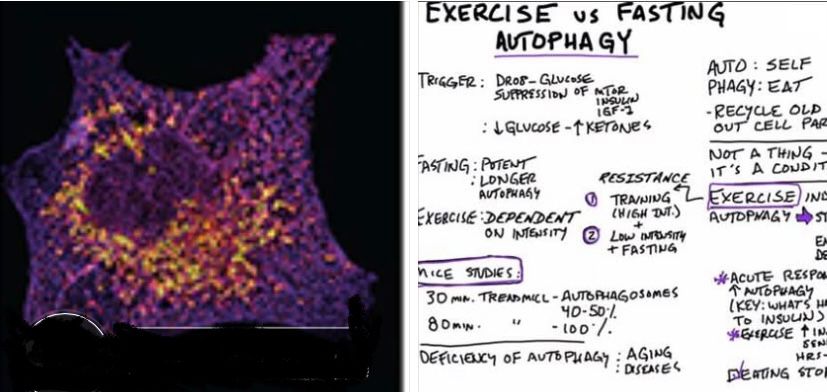 EXERCISE vs FASTING
AUTOPHAGY
TRIGGER: DROB-GLUCOSE
SUPPRESSION OF MTOR
INSULIN
IGF-1
: ↓GLUCOSE-↑KETONES
FASTING: POTENT
: LONGER
AUTOPHAGY
EXERCISE: DEPENDENT
ON INTENSITY
RESISTANCE
① TRAINING
(HIGH INT.)
+
② LOW INTENSITY
+ FASTING
MICE STUDIES:
30 MIN. TREADMILL - AUTOPHAGOSOMES
40-50%
80 MIN. " -100%.
DEFICIENCY OF AUTOPHAGY: AGING
: DISEASES
AUTO: SELF
PHAGY: EAT
-RECYCLE OLD
OUT CELL PAR
NOT A THING -
IT'S A CONDIT
EXERCISE IND
AUTOPHAGY → ST
EN
DE
*ACUTE RESPON
↑AUTOPHAGY
(KEY: WHAT'S HA
TO INSULIN)
*EXERCISE ↑IN
SEN
HRS-
EATING STOP